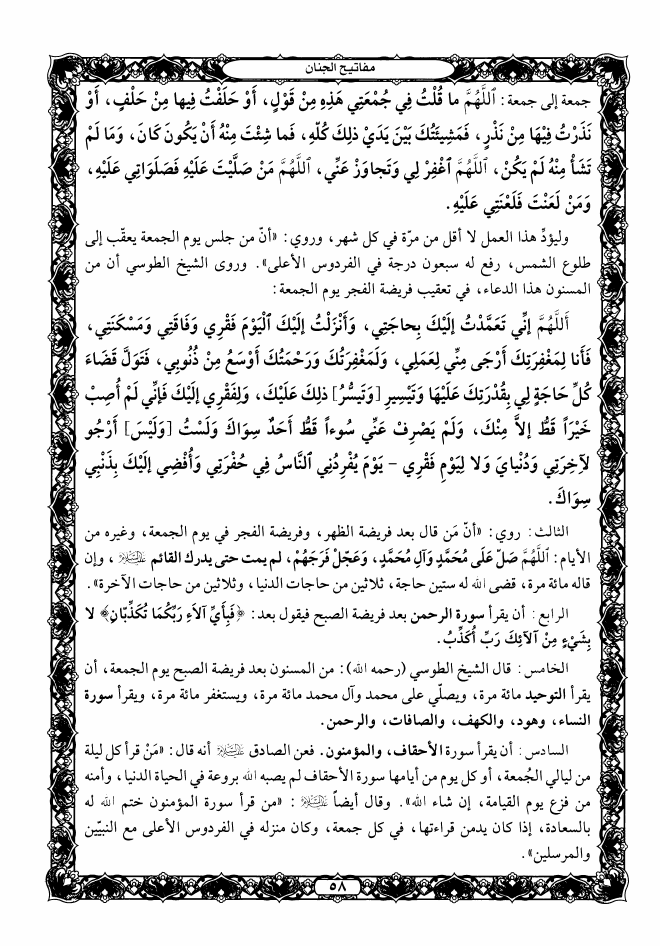 مفاتيح الجنان
جمعة إلى جمعة: اَللَّهُمَّ ما قُلْتُ فِي جُمْعَتِي هَذِهِ مِنْ قَوْلٍ، أَوْ حَلَفْتُ فِيها مِنْ حَلْفٍ، أَوْ
نَذَرْتُ فِيْهَا مِنْ نَذْرٍ، فَمَشِيئَتُكَ بَيْنَ يَدَيْ ذلِكَ كُلِّهِ، فَما شِئْتَ مِنْهُ أَنْ يَكُونَ كَانَ، وَمَا لَمْ
تَشَأْ مِنْهُ لَمْ يَكُنْ، اَللَّهُمَّ اَغْفِرْ لِي وَتَجاوَزْ عَنِّي، اَللَّهُمَّ مَنْ صَلَّيْتَ عَلَيْهِ فَصَلَوَاتِي عَلَيْهِ،
وَمَنْ لَعَنْتَ فَلَعْنَتِي عَلَيْهِ.
وليؤدِّ هذا العمل لا أقل من مرّة في كل شهر، وروي: «أنّ من جلس يوم الجمعة يعقّب إلى
طلوع الشمس، رفع له سبعون درجة في الفردوس الأعلى». وروى الشيخ الطوسي أن من
المسنون هذا الدعاء، في تعقيب فريضة الفجر يوم الجمعة:
أَللَّهُمَّ إِنِّي تَعَمَّدْتُ إِلَيْكَ بِحاجَتِي، وَأَنْزَلْتُ إِلَيْكَ اَلْيَوْمَ فَقْرِي وَفَاقَتِي وَمَسْكَنَتِي،
فَأَنا لِمَغْفِرَتِكَ أَرْجَى مِنِّي لِعَمَلِي، وَلَمَغْفِرَتُكَ وَرَحْمَتُكَ أَوْسَعُ مِنْ ذُنُوبِي، فَتَوَلَّ قَضَاءَ
كُلِّ حَاجَةٍ لِي بِقُدْرَتِكَ عَلَيْهَا وَتَيْسِيرِ [وَتَيَسُّرُ] ذلِكَ عَلَيْكَ، وَلِفَقْرِي إِلَيْكَ فَإِنِّي لَمْ أُصِبْ
خَيْراً قَطُّ إلاَّ مِنْكَ، وَلَمْ يَصْرِفْ عَنِّي سُوءاً قَطُّ أَحَدٌ سِوَاكَ وَلَسْتُ [وَلَيْسَ] أَرْجُو
لآخِرَتِي وَدُنْيايَ وَلا لِيَوْمِ فَقْرِي – يَوْمَ يُفْرِدُنِي اَلنَّاسُ فِي حُفْرَتِي وَأُفْضِي إِلَيْكَ بِذَنْبِي
سِوَاكَ.
الثالث: روي: «أنّ مَن قال بعد فريضة الظهر، وفريضة الفجر في يوم الجمعة، وغيره من
الأيام: اَللَّهُمَّ صَلِّ عَلَى مُحَمَّدٍ وَآلِ مُحَمَّدٍ، وَعَجِّلْ فَرَجَهُمْ، لم يمت حتى يدرك القائم ﵇، وإن
قاله مائة مرة، قضى الله له ستين حاجة، ثلاثين من حاجات الدنيا، وثلاثين من حاجات الآخرة».
الرابع: أن يقرأ سورة الرحمن بعد فريضة الصبح فيقول بعد: ﴿فَبِأَيِّ آلَاءِ رَبِّكُمَا تُكَذِّبَانِ﴾ لا
بِشَيْءٍ مِنْ آلَائِكَ رَبِّ أُكَذِّبُ.
الخامس: قال الشيخ الطوسي (رحمه الله): من المسنون بعد فريضة الصبح يوم الجمعة، أن
يقرأ التوحيد مائة مرة، ويصلّي على محمد وآل محمد مائة مرة، ويستغفر مائة مرة، ويقرأ سورة
النساء، وهود، والكهف، والصافات، والرحمن.
السادس: أن يقرأ سورة الأحقاف، والمؤمنون. فعن الصادق ﵇ أنه قال: «مَنْ قرأ كل ليلة
من ليالي الجُمعة، أو كل يوم من أيامها سورة الأحقاف لم يصبه الله بروعة في الحياة الدنيا، وأمنه
من فزع يوم القيامة، إن شاء الله». وقال أيضاً ﵇: «من قرأ سورة المؤمنون ختم الله له
بالسعادة، إذا كان يدمن قراءتها، في كل جمعة، وكان منزله في الفردوس الأعلى مع النبيّين
والمرسلين».
٥٨